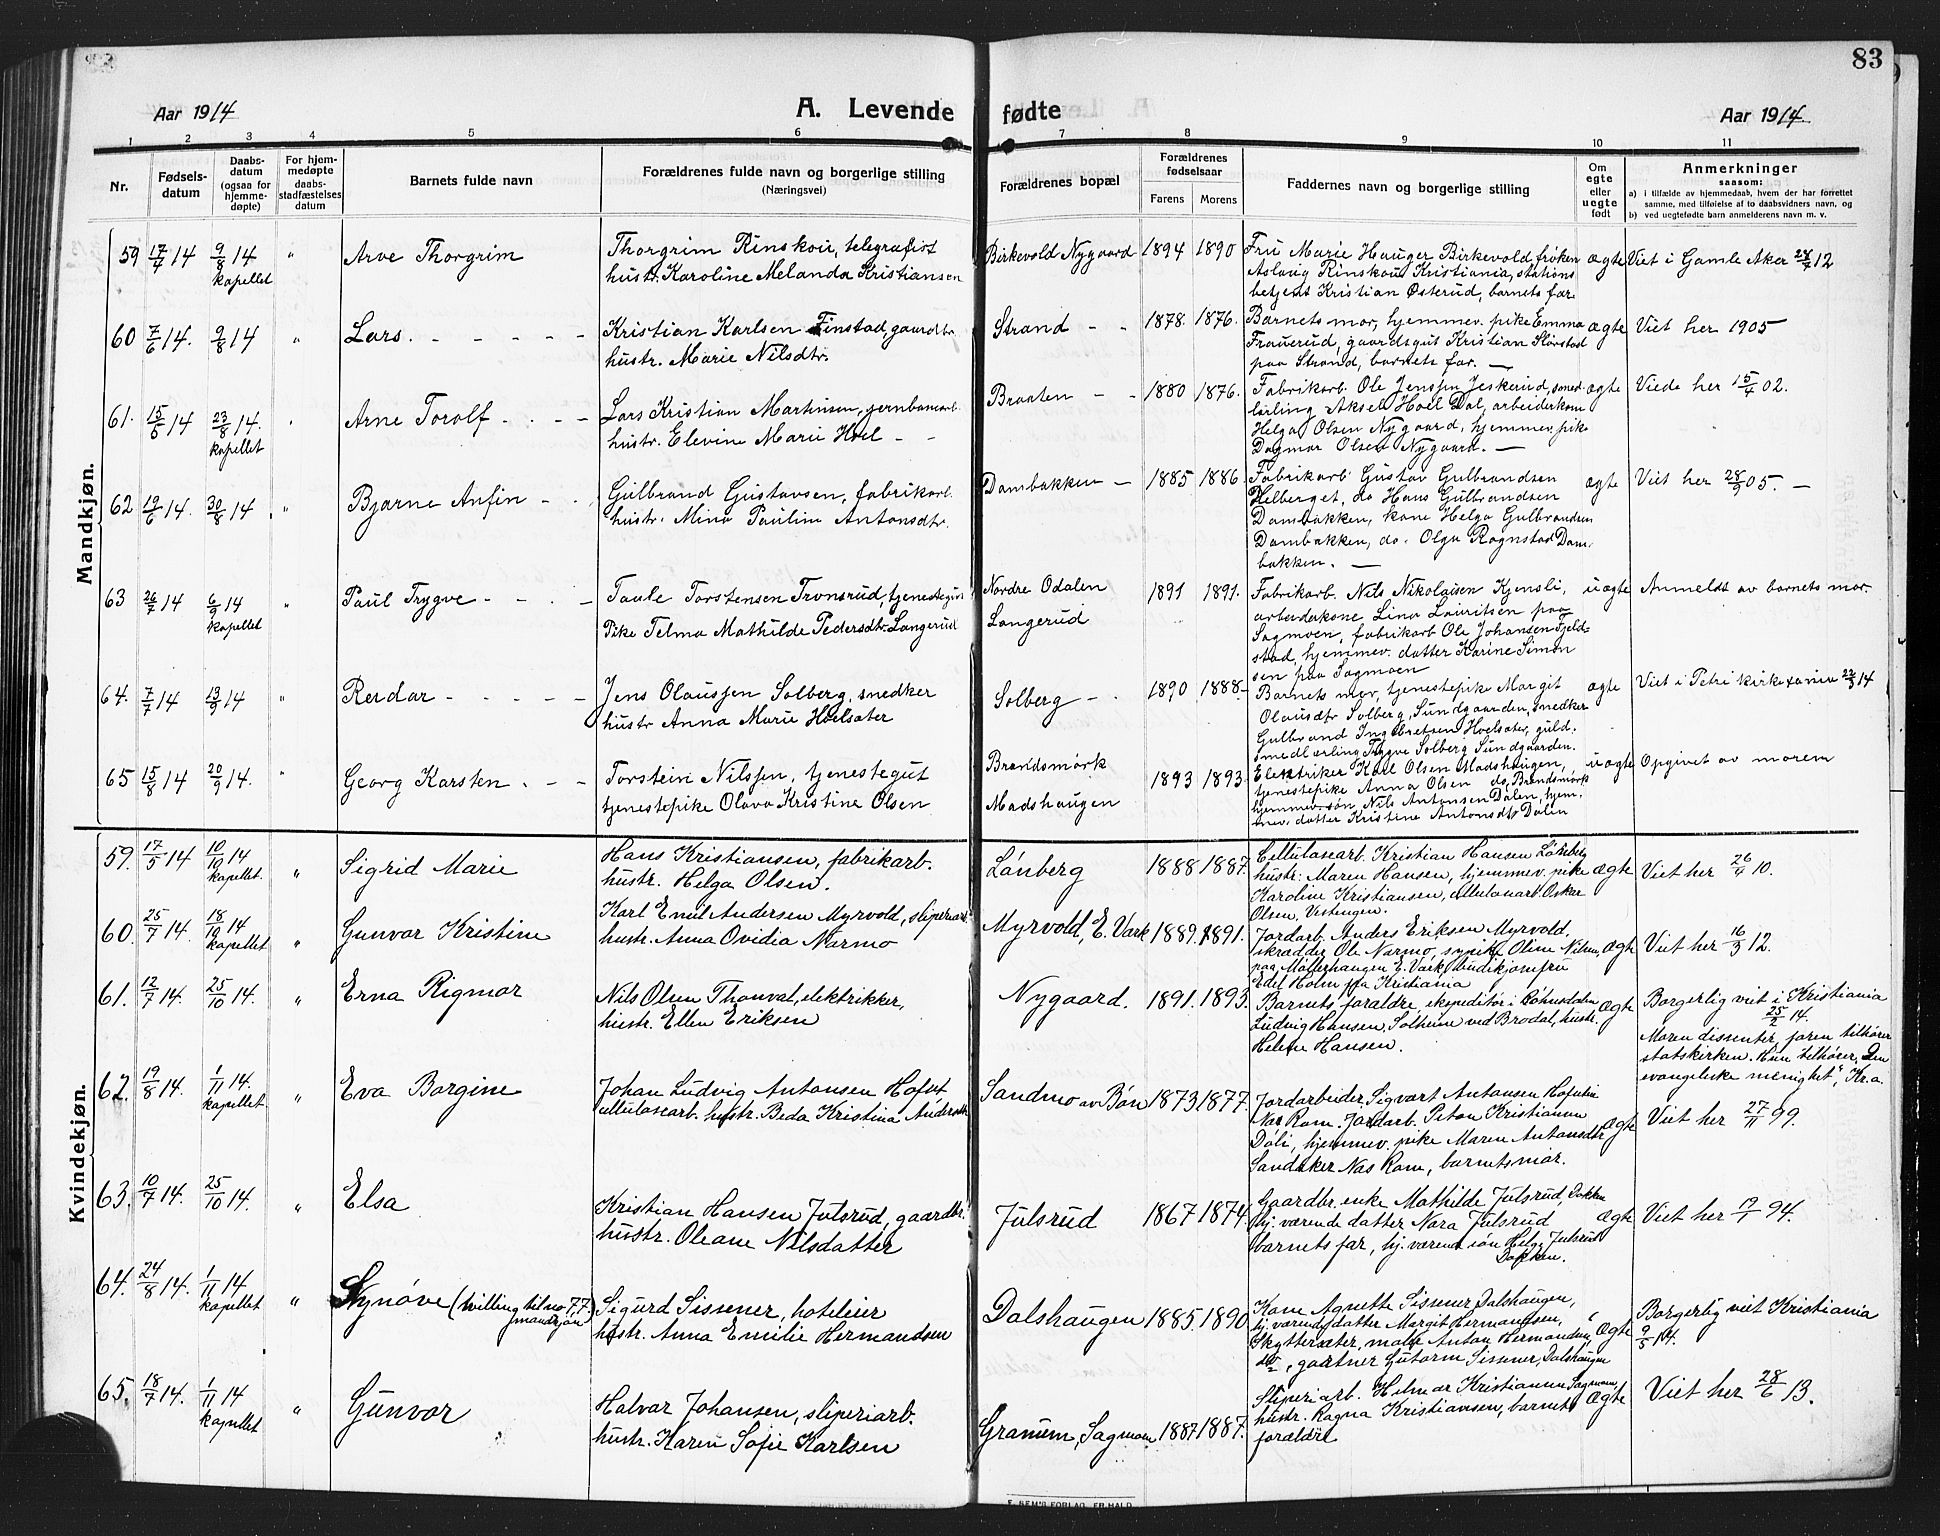 83
Aar 1914
A. Levende fødte
Aar 1914
1 2 3 4 5 6 7 8 9 10 11
Nr.
Fødsels-
datum
Daabs-
datum
(ogsaa for
hjemme-
døpte)
For hjem-
medøpte
daabs-
stadfæstelses
datum
Barnets fulde navn
Forældrenes fulde navn og borgerlige stilling
(Næringsvei)
Forældrenes bopæl
Forældrenes
fødselsaar
Farens Morens
Faddernes navn og borgerlige stilling
Om
egte
eller
uegte
født
Anmerkninger
saasom:
a) i tilfælde av hjemmedaab, hvem der har forrettet
samme, med tilføielse af to daabsvidners navn, og
b) ved uegtefødte barn anmelderens navn m. v.
Mandkjøn.
59 17/4 14 9/8 14 kapellet " Arve Thorgrim
Thorgrim Rinskou, telegrafist
hustr. Karoline Melanda Kristiansen
Birkevold Nygaard 1894 1890
Fru Marie Hauger Birkevold frøken
Aslaug Rinskou Kristiania, stations
betjent Kristian Østerud, barnets far
ægte Viet i Gamle Aker 12
60 7/6 14. 9/8 14 " Lars.
Kristian Karlsen Finstad, gaardbr.
hustr. Marie Nilsdtr.
Strand 1878. 1876.
Barnets mor, hjemmev. pike Emma
Frauerud, gaardsgut Kristian Slorstad
paa Strand, barnets far.
ægte Viet her 1905
61. 15/6 14 23/8 14. kapellet Arne Torolf
Lars Kristian Martinsen, jernbanearb.
hustr. Elevine Marie Hoel
Braaten 1880 1876.
Fabrikarb. Ole Jenssen Jeskerud, smed-
lærling Aksel Hoel Dal, arbeiderkone
Helga Olsen Nygaard, hjemmev. pike
Dagmar Olsen Nygaard.
ægte Viede her 15/4 02.
62 19/6 14. 30/8 14. " Bjarne Anfin
Gulbrand Gustavsen, fabrikarb.
hustr. Mina Pauline Antonsdtr.
Dambakken 1885 1886
Fabrikarb. Gustav Gulbrandsen
Helberget, do Hans Gulbrandsen
Dambakken, kone Helga Gulbrandsen
Dambakken, do. Olga Rognstad Dam-
bakken.
ægte Viet her 28/9 05.
63 26/7 14 6/9 14 kapellet " Paul Trygve
Taule Torstensen Tronsrud, tjenestegut
Pike Telma Mathilde Pedersdtr. Langerud
Nordre Odalen
Langerud
1891 1891.
Fabrikarb. Nils Nikolaisen Kjensli,
arbeiderkone Lina Lauritsen paa
Sagmoen, fabrikarb Ole Johansen Fjeld-
stad, hjemmev. datter Karine Simon
sen paa Sagmoen
uægte Anmeldt av barnets mor.
64. 7/7 14 13/9 14 " Reidar
Jens Olaussen Solberg, snedker
hustr Anna Marie Hoelsæter
Solberg 1890 1888
Barnets mor, tjenestepike Margit
Olausdtr Solberg, Sundgaarden, snedker
Gulbrand Ingebretsen Hoelsæter, guld-
smedlærling Trygve Solberg Sundgaarden.
ægte Viet i Petri kirke 14
65 15/8 14 20/9 14. " Georg Karsten
Torstein Nilssen, tjenestegut
tjenestepike Olava Kristine Olsen
Brandsmork
Madshaugen
1893 1893
Elektriker Karl Olsen Madshaugen,
tjenestepike Anna Olsen do, Brandsmork
hjemmev. søn, Nils Antonsen Dalen, hjem-
mev. datter Kristine Antonsdtr Dalen
uægte Opgivet av moren
Kvindekjøn.
59. 17/5 14 10/10 14 kapellet. " Sigrid Marie
Hans Kristiansen, fabrikarb.
hustr. Helga Olsen.
Lønberg 1888 1887.
Cellulosearb. Kristian Hansen Lønberg
hustr. Maren Hansen, hjemmev. pike
Karoline Kristiansen, cellulosearb Oskar
Olsen, Vestengen.
ægte Viet her 10.
60. 25/7 14. 18/10 14 kapellet " Gunvor Kristine
Karl Emil Andersen Myrvold, sliperiarb
hustr. Anna Ovidia Narmo
Myrvold, E. Værk 1889. 1891.
Jordarb. Anders Eriksen Myrvold,
skrædder Ole Narmo, sypike Oline Nilsen,
paa Møllerhaugen E. Værk, butikjomfru
Edel Holm fra Kristiania
ægte Viet her 16/3 12.
61. 12/7 14. 25/10 14. " Erna Rigmor
Nils Olsen Thorval, elektrikker,
hustr. Ellen Eriksen
Nygaard. 1891. 1893.
Barnets forældre, ekspeditør i Bøhnsdalen
Ludvig Hansen, Solheim ved Brodal, hustr.
Helene Hansen.
ægte Borgerlig viet i Kristiania
25/2 14.
Moren dissenter, faren tilhører
statskirken. Hun tilhører „Den
evangeliske menighet", Kr.a.
62. 19/8 14. 1/11 14. kapellet " Eva Borgine
Johan Ludvig Antonsen Hofset
cellulosearb. hustr. Beda Kristina Andersdtr
Sandmo av Bøn 1873 1877.
Jordarbeider Sigvart Antonsen
Nas Rom. Jordarb. Petan Kristiansen
Dali, hjemmev. pike Maren Antonsdtr
Sandaker Nas Rom, barnets mor.
ægte Viet her 27/11 99.
63. 10/7 14. 25/10 14. " Elsa
Kristian Hansen Julsrud, gaardbr.
hustr. Oleane Nilsdatter
Julsrud 1867 1874.
Gaardbr. enke Mathilde Julsrud, Dokken
hj. værende datter Nora Julsrud
barnets far, hj. værende søn Helge Julsrud
Dokken.
ægte Viet her 94.
64. 24/8 14. 1/11 14 kapellet " Synøve (tvilling til no 77. mandkjøn)
Sigurd Sissener, hoteleier
hustr. Anna Emilie Hermandsen
Dalshaugen 1885. 1890
Kone Agnette Sissener Dalshaugen,
hj. værende datter Margit Hermandsen,
Skytteræter, maler Anton Hermandsen,
do, gartner Gutorm Sissener, Dalshaugen
ægte Borgerlig viet Kristiania
9/5 14.
65. 18/7 14. 1/11 14 kapellet " Gunvor
Halvar Johansen, sliperiarb.
hustr. Karen Sofie Karlsen
Granum, Sagmoen 1887 1887.
Sliperiarb. Helmer Kristiansen Sagmoen,
hustr. Ragna Kristiansen, barnets
forældre
ægte Viet her 28/6 13.
E. SEM'S FORLAG, FR.HALD